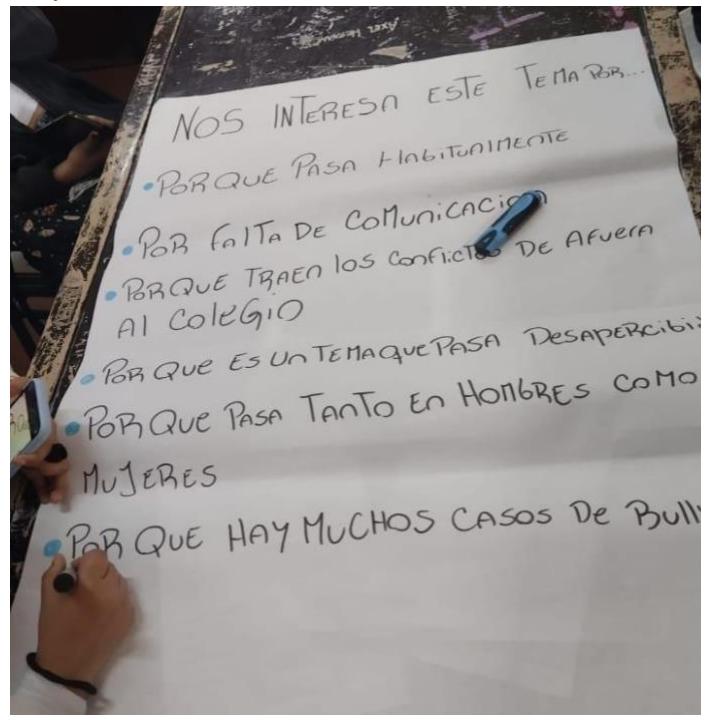 NOS INTERESA ESTE TEMA POR...
•PORQUE PASA HABITUALMENTE
•POR FALTA DE COMUNICACION
•PORQUE TRAEN los CONFICTOS DE AFUERA
Al COLEGIO
•PORQUE ES UN TEMA QUE PASA DESAPERCIBI
•PORQUE PASA TANTO EN HOMBRES COMO
MUJERES
•PORQUE HAY MUCHOS CASOS DE BULL